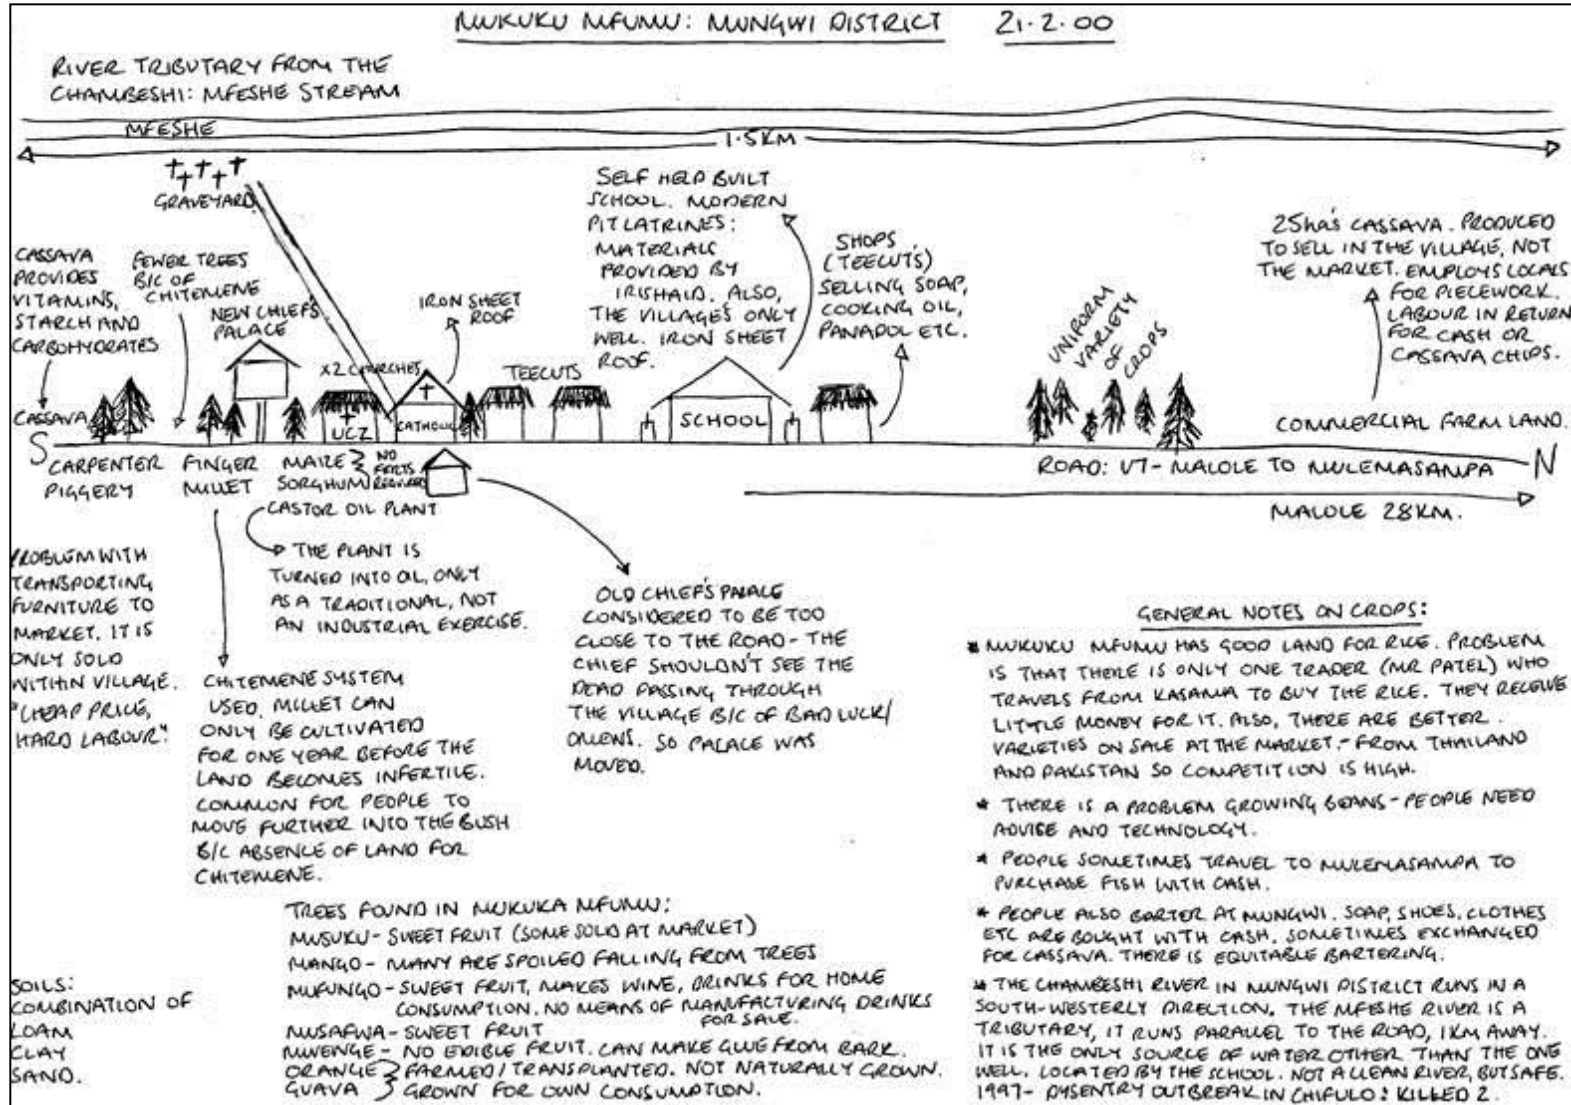 MUKUKU MFUMU: MUNGWI DISTRICT 21.2.00
RIVER TRIBUTARY FROM THE
CHAMBESHI: MFESHE STREAM
MFESHE
1.5KM
GRAVEYARD
CASSAVA
PROVIDES
VITAMINS,
STARCH AND
CARBOHYDRATES
FEWER TREES
B/C OF
CHITEMENE
NEW CHIEF'S
PALACE
IRON SHEET
ROOF
X2 CHURCHES
SELF HELP BUILT
SCHOOL. MODERN
PIT LATRINES:
MATERIALS
PROVIDED BY
IRISHAID. ALSO,
THE VILLAGE'S ONLY
WELL. IRON SHEET
ROOF.
SHOPS
(TEECUTS)
SELLING SOAP,
COOKING OIL,
PANADOL ETC.
UNIFORM
VARIETY
OF
CROPS
25ha's CASSAVA. PRODUCED
TO SELL IN THE VILLAGE, NOT
THE MARKET. EMPLOYS LOCALS
FOR PIECEWORK.
LABOUR IN RETURN
FOR CASH OR
CASSAVA CHIPS.
TEECUTS
CASSAVA
UCZ
CATHOLIC
SCHOOL
COMMERCIAL FARM LAND.
S
N
CARPENTER
PIGGERY
FINGER
MILLET
MAIZE
SORGHUM
NO
FERTS
REQUIRED
CASTOR OIL PLANT
ROAD: U7 - MALOLE TO MULEMASAMPA
MALOLE 28KM.
PROBLEM WITH
TRANSPORTING
FURNITURE TO
MARKET. IT IS
ONLY SOLD
WITHIN VILLAGE.
"CHEAP PRICE,
HARD LABOUR".
THE PLANT IS
TURNED INTO OIL, ONLY
AS A TRADITIONAL, NOT
AN INDUSTRIAL EXERCISE.
CHITEMENE SYSTEM
USED. MILLET CAN
ONLY BE CULTIVATED
FOR ONE YEAR BEFORE THE
LAND BECOMES INFERTILE.
COMMON FOR PEOPLE TO
MOVE FURTHER INTO THE BUSH
B/C ABSENCE OF LAND FOR
CHITEMENE.
OLD CHIEF'S PALACE
CONSIDERED TO BE TOO
CLOSE TO THE ROAD - THE
CHIEF SHOULDN'T SEE THE
DEAD PASSING THROUGH
THE VILLAGE B/C OF BAD LUCK/
OMENS. SO PALACE WAS
MOVED.
GENERAL NOTES ON CROPS:
* MUKUKU MFUMU HAS GOOD LAND FOR RICE. PROBLEM
IS THAT THERE IS ONLY ONE TRADER (MR PATEL) WHO
TRAVELS FROM KASAMA TO BUY THE RICE. THEY RECEIVE
LITTLE MONEY FOR IT. ALSO, THERE ARE BETTER
VARIETIES ON SALE AT THE MARKET - FROM THAILAND
AND PAKISTAN SO COMPETITION IS HIGH.
* THERE IS A PROBLEM GROWING BEANS - PEOPLE NEED
ADVISE AND TECHNOLOGY.
* PEOPLE SOMETIMES TRAVEL TO MULEMASAMPA TO
PURCHASE FISH WITH CASH.
* PEOPLE ALSO BARTER AT MUNGWI. SOAP, SHOES, CLOTHES
ETC ARE BOUGHT WITH CASH. SOMETIMES EXCHANGED
FOR CASSAVA. THERE IS EQUITABLE BARTERING.
* THE CHAMBESHI RIVER IN MUNGWI DISTRICT RUNS IN A
SOUTH-WESTERLY DIRECTION. THE MFESHE RIVER IS A
TRIBUTARY, IT RUNS PARALLEL TO THE ROAD, 1KM AWAY.
IT IS THE ONLY SOURCE OF WATER OTHER THAN THE ONE
WELL, LOCATED BY THE SCHOOL. NOT A CLEAN RIVER, BUT SAFE.
1997 - DYSENTRY OUTBREAK IN CHIFULO: KILLED 2.
TREES FOUND IN MUKUKA MFUMU:
MUSUKU - SWEET FRUIT (SOME SOLD AT MARKET)
MANGO - MANY ARE SPOILED FALLING FROM TREES
MUFUNGO - SWEET FRUIT, MAKES WINE, DRINKS FOR HOME
CONSUMPTION. NO MEANS OF MANUFACTURING DRINKS
FOR SALE.
MUSAFWA - SWEET FRUIT
MWENGE - NO EDIBLE FRUIT. CAN MAKE GLUE FROM BARK.
ORANGE FARMED / TRANSPLANTED. NOT NATURALLY GROWN.
GUAVA GROWN FOR OWN CONSUMPTION.
SOILS:
COMBINATION OF
LOAM
CLAY
SAND.